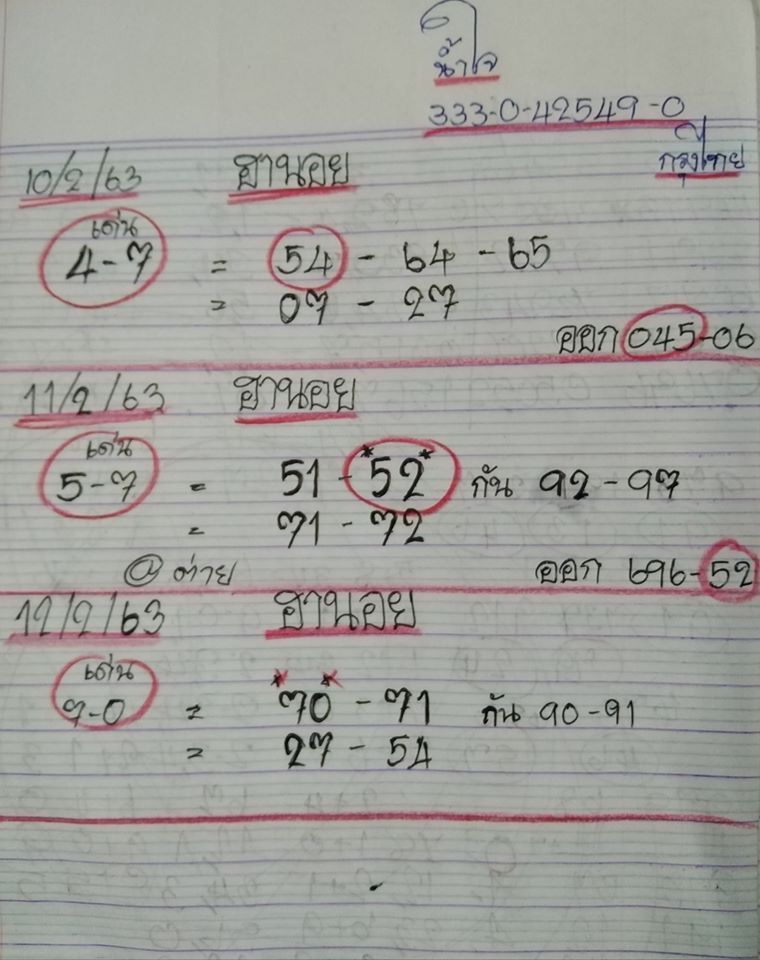 น้ำใจ
333-0-42549-0
กรุงไทย
10/2/63 ฮานอย
เด่น
4-7 = 54 - 64 - 65
= 07 - 27
ออก 045-06
11/2/63 ฮานอย
เด่น
5-7 = 51 - *52* กัน 92 - 97
= 71 - 72
@ ต่าย ออก 696-52
12/2/63 ฮานอย
เด่น
7-0 = *70* - 71 กัน 90-91
= 27 - 54